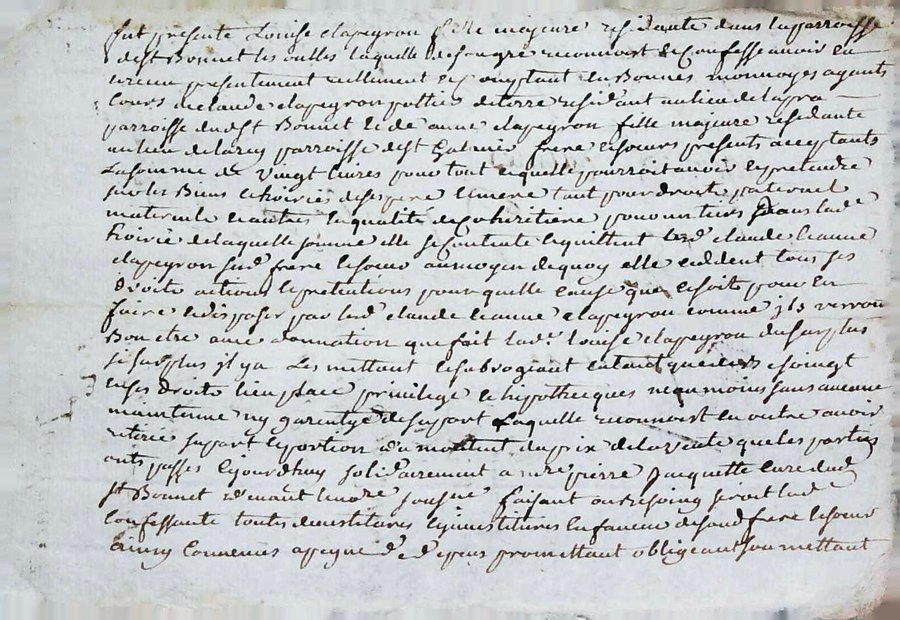 fut presente Louise clapeyron fille majeure residante dans la parroisse
de st Bonnet les oulles laquelle de son gré reconnoit et confesse avoir eu
receu presentement reellement et comptant en Bonnes monnoyes ayants
Cours de claude clapeyron pottier de terre residant au lieu de lapra
parroisse dud st Bonnet et de anne clapeyron fille majeure residante
au lieu de parroisse de st Galmier frere et soeurs presents acceptants
La somme de vingt livres pour tout ce quelle pourroit avoir et pretendre
sur les Biens et hoirie de ses pere et mere tant pour droit paternel
maternel et autres en qualité de Coheritiere pour un tiers dans lad
hoirie de laquelle somme elle se Contente et quittent lesd claude et anne
clapeyron sesd frere et soeur au moyen de quoy elle cedent tous ses
droits actions et pretentions pour quelle cause que ce soit pour en
faire et disposer par lesd claude et anne clapeyron comme ils verront
Bon etre avec donnation que fait lad Louise clapeyron du surplus
si surplus il y a Les mettant et subrogeant
en ses droits lieu place privilege et hipothecques neanmoins sans aucune
maintenue ny garentye de sa part Laquelle reconnoit en outre avoir
retiré sa part et portion du montant du prix de la vente que les parties
ont passés cejourdhuy solidairement a mre pierre Jacquette curé dud
st Bonnet devant le nore sousigné faisant au besoing lad
Confessante toutes devestitures et investitures en faveur de sesd frere et soeur
Ainsy Convenus a peyne de depens promettant obligeant soumettant